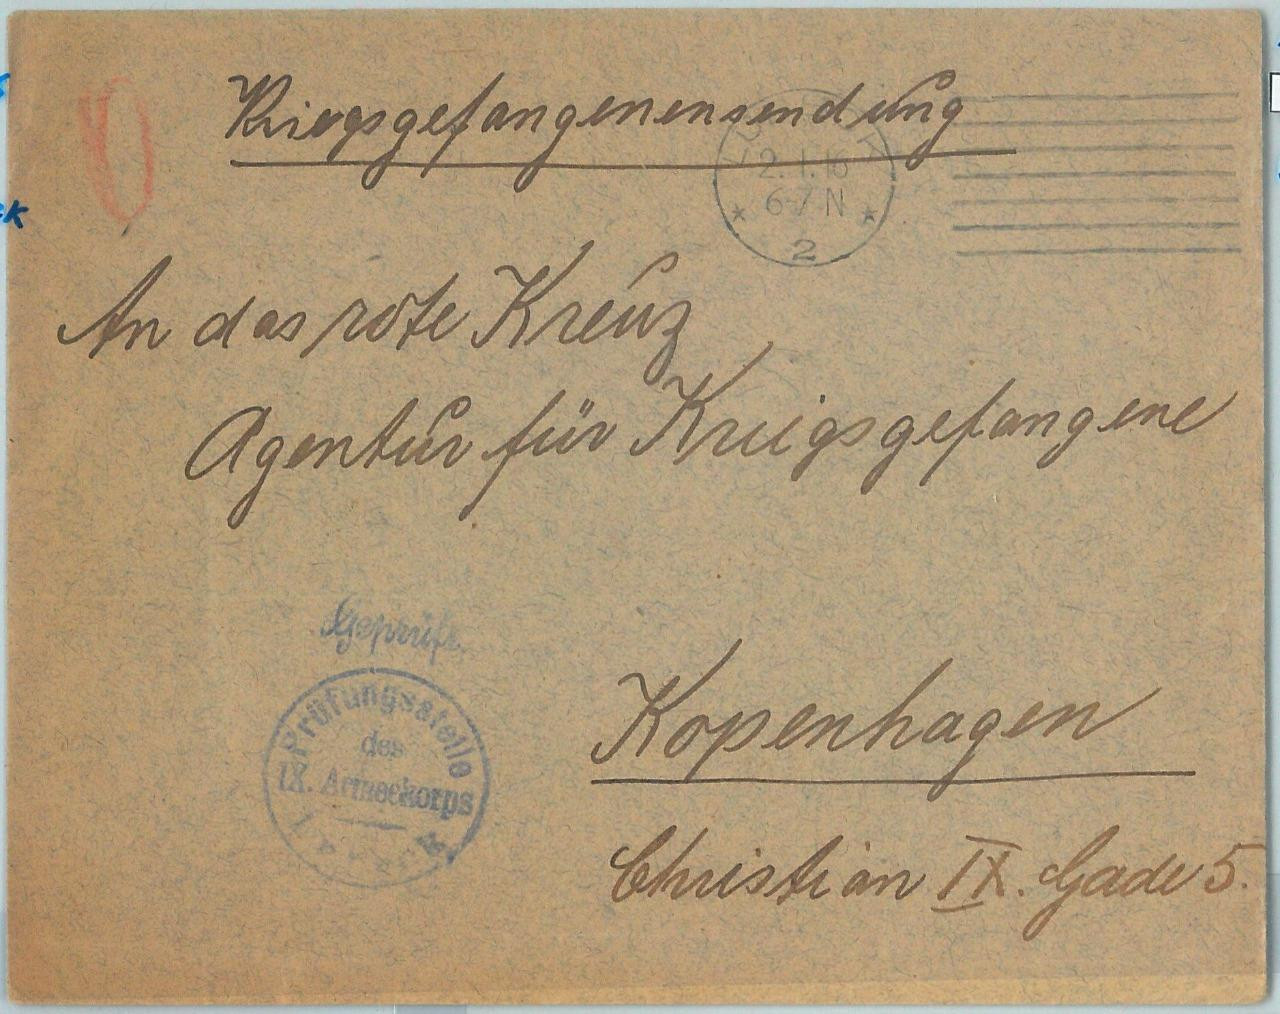 Kriegsgefangenensendung
2.1.16
6-7 N
2
An das rote Kreuz
Agentur für Kriegsgefangene
Geprüft
Prüfungsstelle
des
IX. Armeekorps
Kopenhagen
Christian IX. Gade 5.